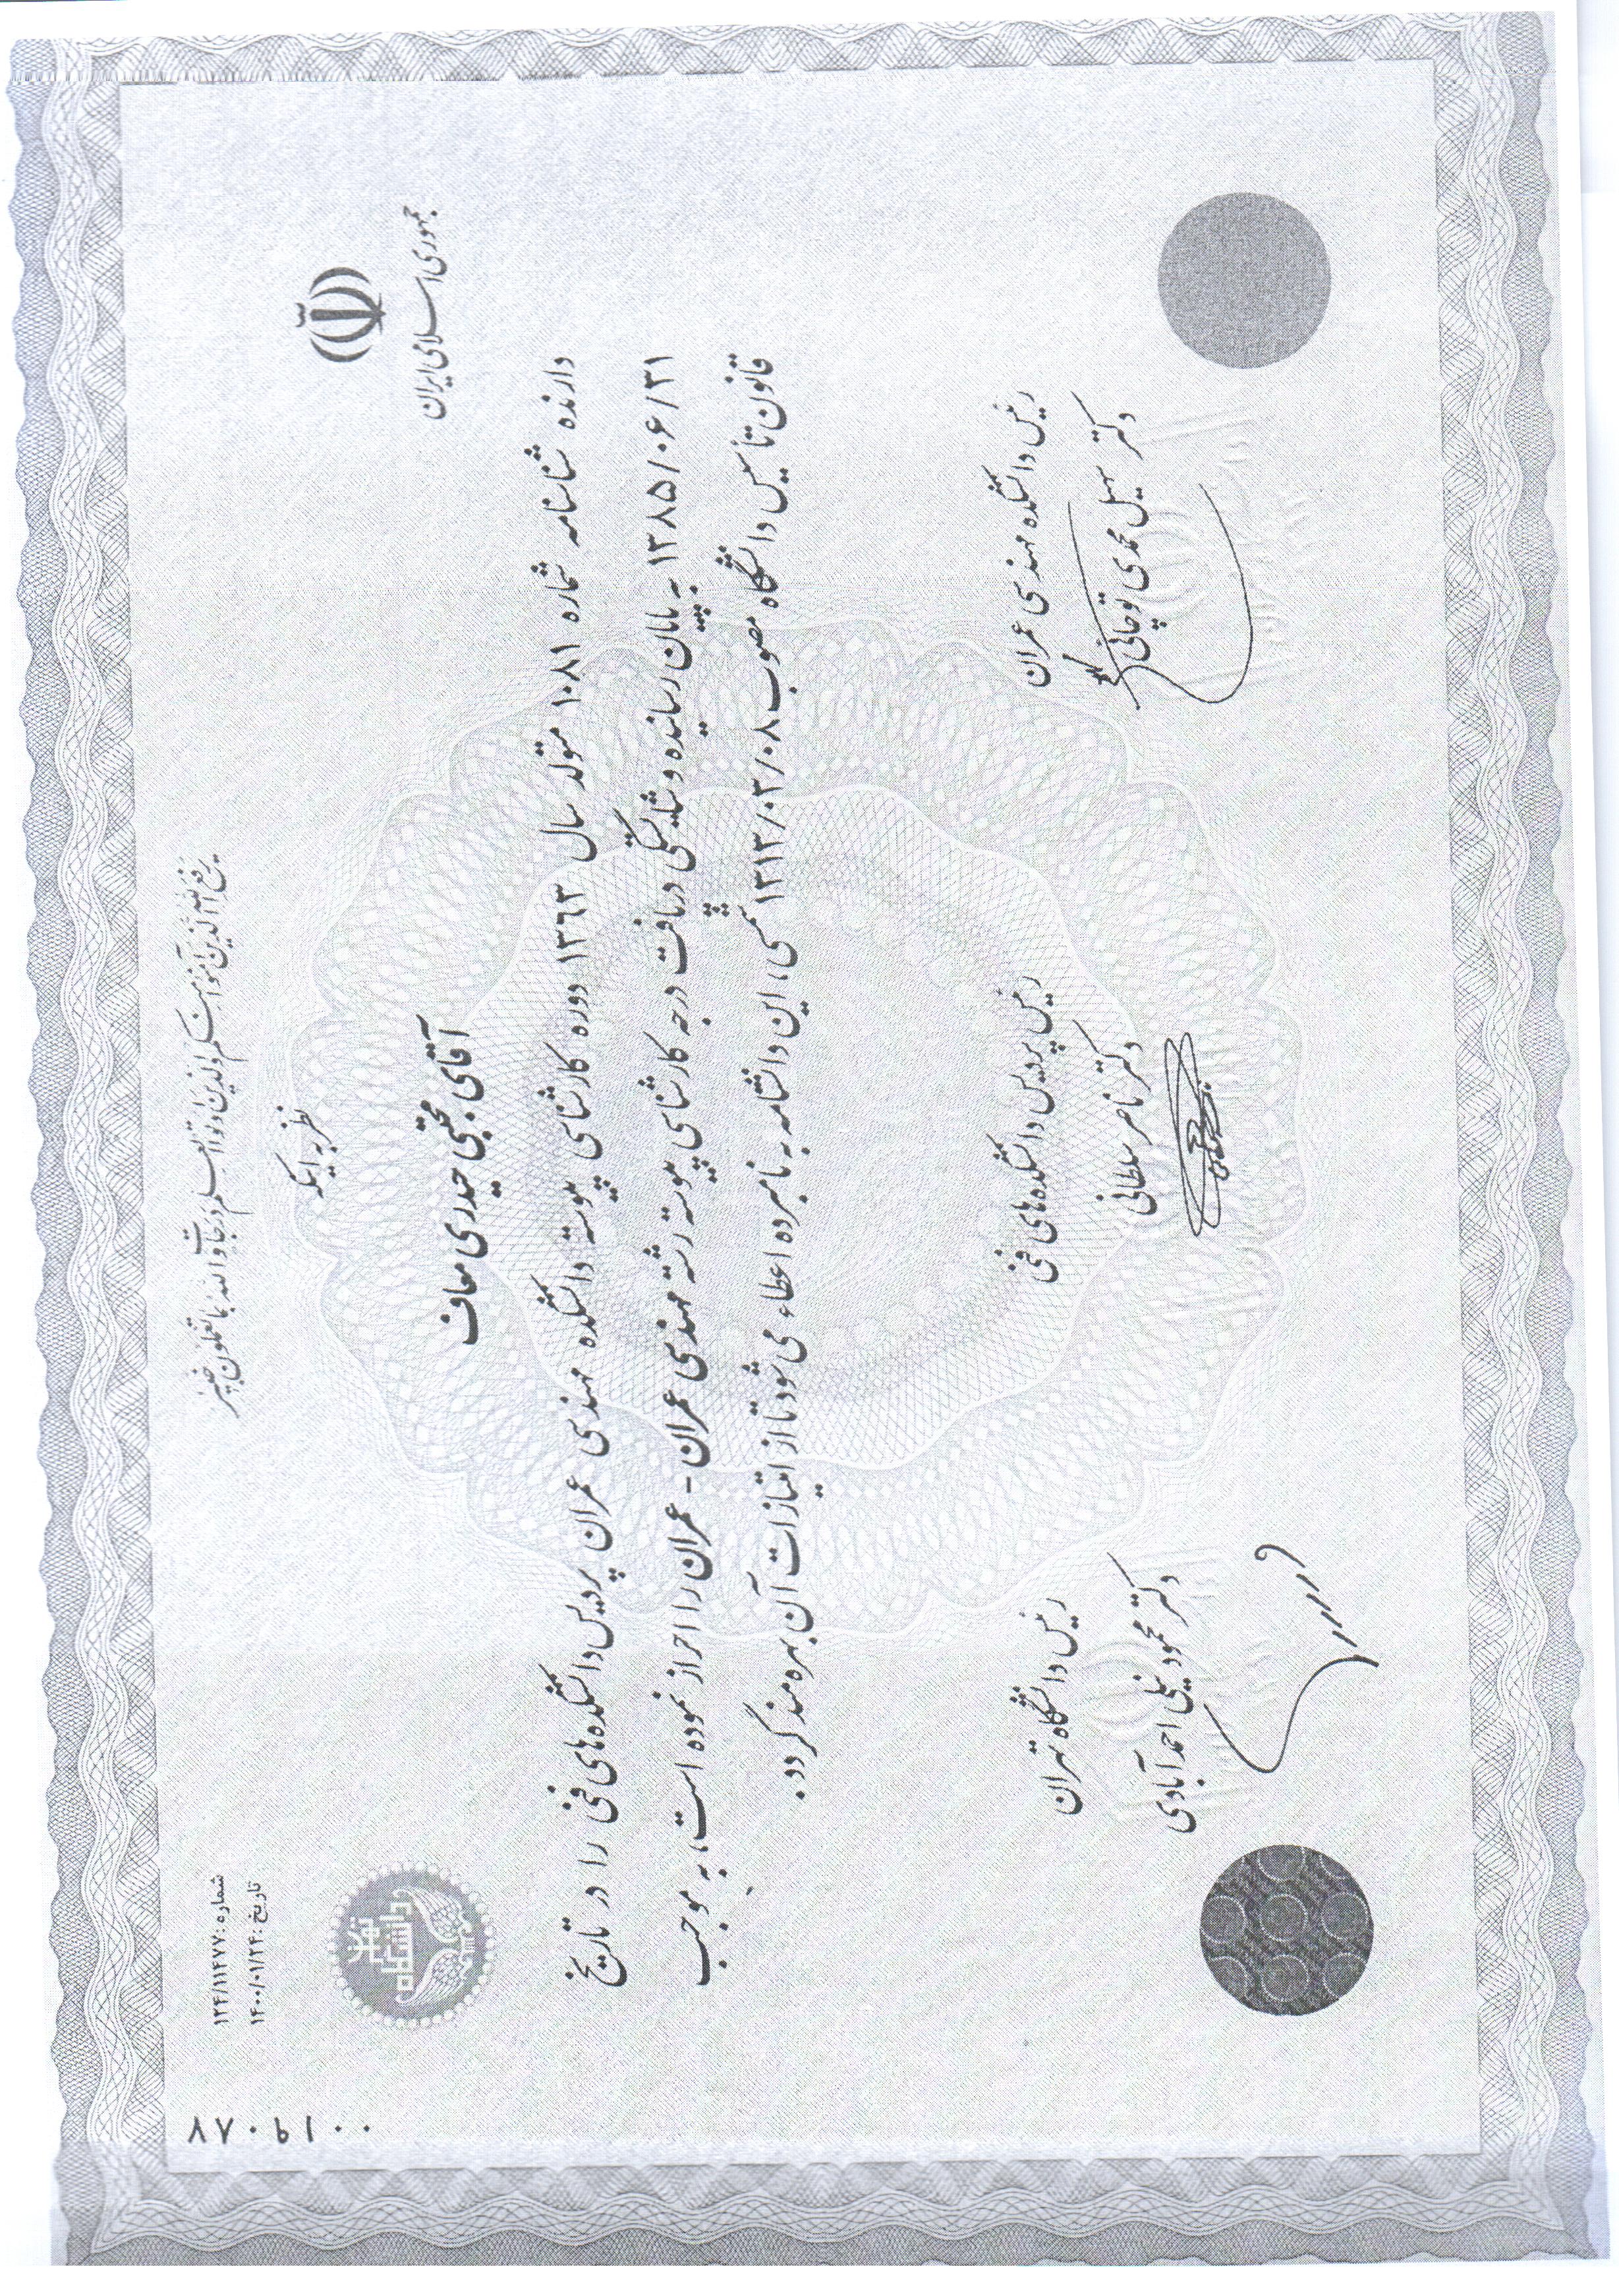 يرفع الله الذين آمنوا منكم والذين اوتوا العلم درجات والله بما تعملون خبير
نظر به اینکه
جمهوری اسلامی ایران
شماره: ۱۲۴/۱۱۴۷۷
تاریخ: ۱۴۰۰/۰۱/۲۴
۰۰۱۹۰۸۷
دانشگاه تهران
آقای مجتبی حیدری معاف
دارنده شناسنامه شماره ۱۰۸۱ متولد سال ۱۳۶۳ دوره کارشناسی پیوسته دانشکده مهندسی عمران پردیس دانشکده‌های فنی را در تاریخ
۱۳۸۵/۰۶/۳۱ به پایان رسانیده و شایستگی دریافت درجه کارشناسی پیوسته رشته مهندسی عمران - عمران را احراز نموده است، به موجب
قانون تأسیس دانشگاه مصوب ۱۳۱۳/۰۳/۰۸ شمسی، این دانشنامه به نامبرده اعطاء می شود تا از امتیازات آن بهره‌مند گردد.
رئیس دانشکده مهندسی عمران
دکتر سهیل محمدی توچائی
رئیس پردیس دانشکده‌های فنی
دکتر ناصر سلطانی
رئیس دانشگاه تهران
دکتر محمود نیلی احمدآبادی